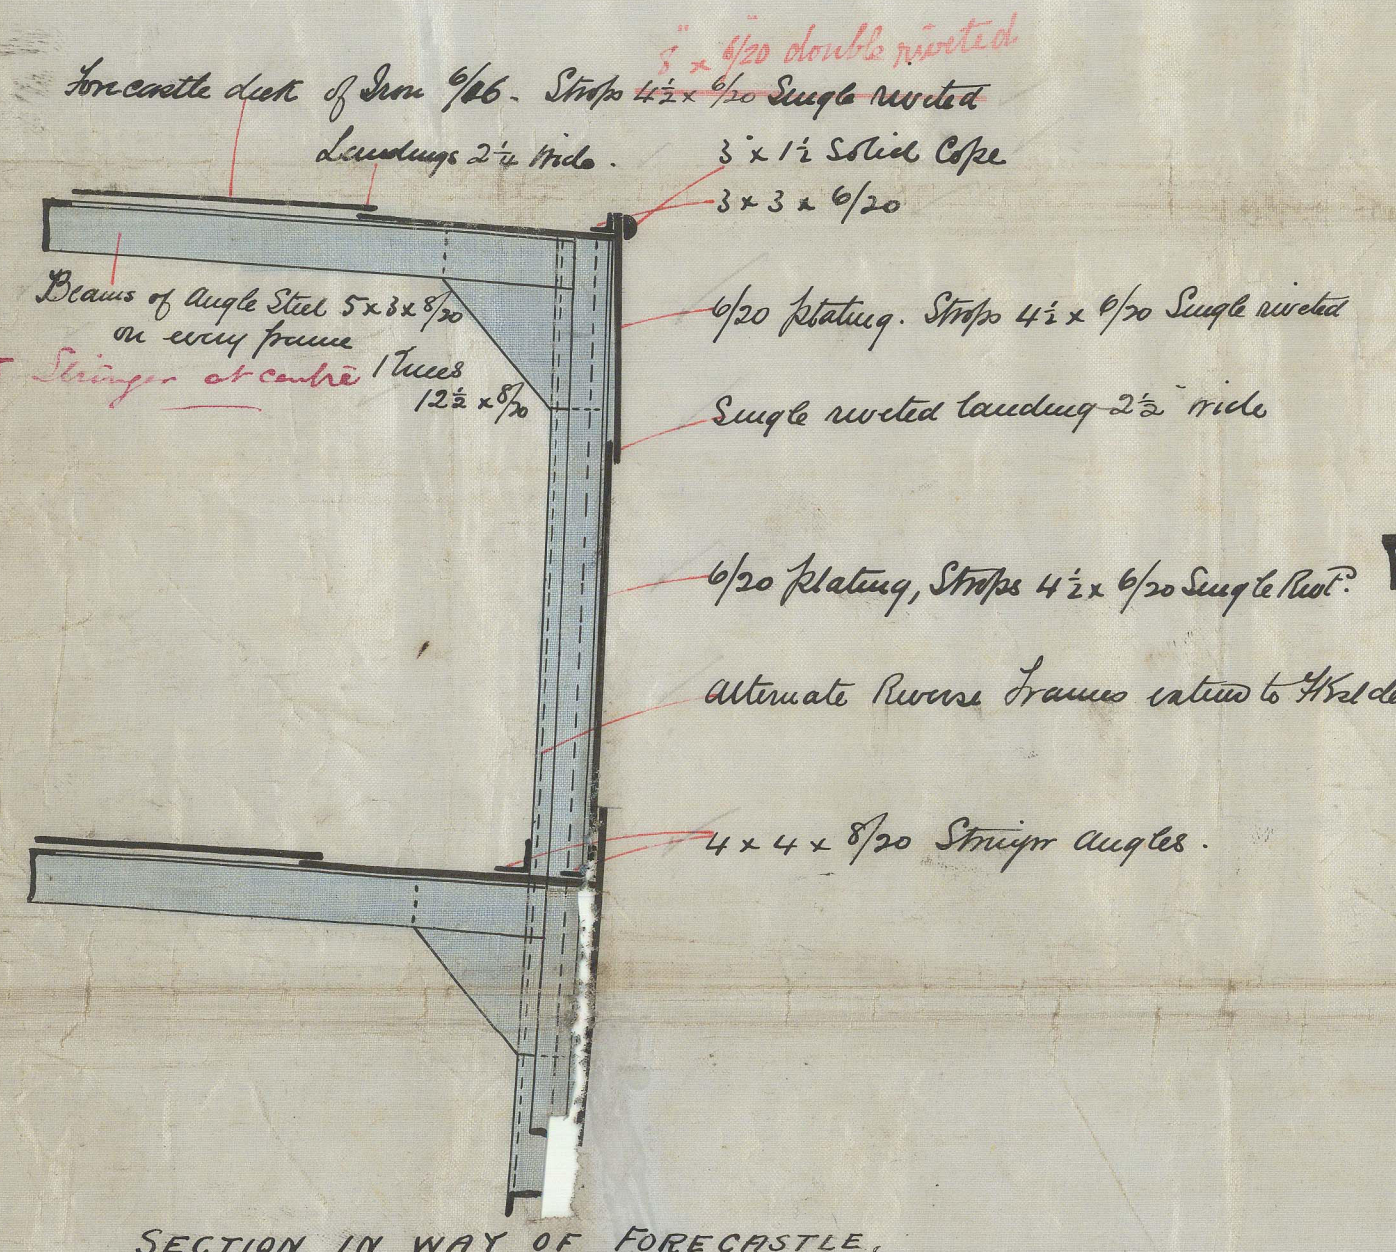 8" x 6/20 double riveted
Forecastle deck of Iron 6/16 - Straps 4½ x 6/20 Single riveted
Landings 2¼ wide.
3" x 1½ Solid Cope
3 x 3 x 6/20
Beams of Angle Steel 5 x 3 x 8/20
on every frame
Stringer at centre
Knees
12½ x 8/20
6/20 Plating. Straps 4½ x 6/20 Single riveted
Single riveted landing 2½" wide
6/20 Plating, Straps 4½ x 6/20 Single Rivt.d
Alternate Reverse Frames extend to
4 x 4 x 8/20 Stringer Angles.
SECTION IN WAY OF FORECASTLE.